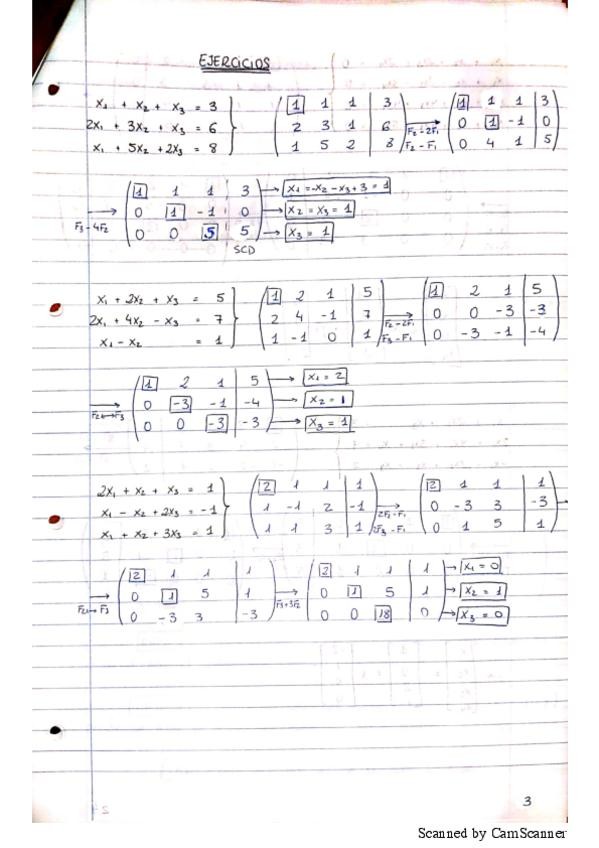 EJERCICIOS
x₁ + x₂ + x₃ = 3
2x₁ + 3x₂ + x₃ = 6
x₁ + 5x₂ + 2x₃ = 8
1 1 1 | 3
2 3 1 | 6
1 5 2 | 8
F₂-2F₁
F₂-F₁
1 1 1 | 3
0 1 -1 | 0
0 4 1 | 5
F₃-4F₂
1 1 1 | 3 → x₁=-x₂-x₃+3=1
0 1 -1 | 0 → x₂=x₃=1
0 0 5 | 5 → x₃=1
SCD
x₁ + 2x₂ + x₃ = 5
2x₁ + 4x₂ - x₃ = 7
x₁ - x₂ = 1
1 2 1 | 5
2 4 -1 | 7
1 -1 0 | 1
F₂-2F₁
F₃-F₁
1 2 1 | 5
0 0 -3 | -3
0 -3 -1 | -4
F₂↔F₃
1 2 1 | 5 → x₁=2
0 -3 -1 | -4 → x₂=1
0 0 -3 | -3 → x₃=1
2x₁ + x₂ + x₃ = 1
x₁ - x₂ + 2x₃ = -1
x₁ + x₂ + 3x₃ = 1
2 1 1 | 1
1 -1 2 | -1
1 1 3 | 1
2F₂-F₁
2F₃-F₁
2 1 1 | 1
0 -3 3 | -3
0 1 5 | 1
F₂↔F₃
2 1 1 | 1
0 1 5 | 1
0 -3 3 | -3
F₃+3F₂
2 1 1 | 1 → x₁=0
0 1 5 | 1 → x₂=1
0 0 18 | 0 → x₃=0
3
Scanned by CamScanner